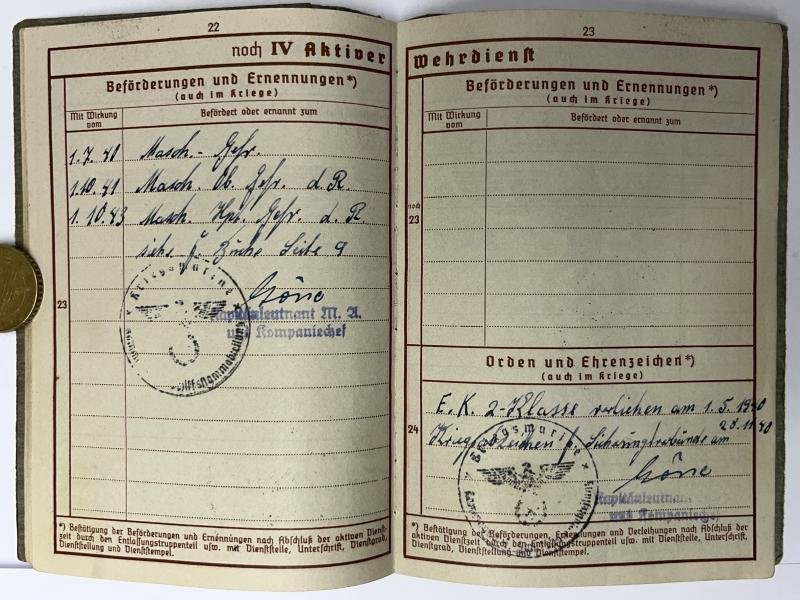 22
noch IV Aktiver
Beförderungen und Ernennungen*)
(auch im Kriege)
Mit Wirkung vom
Befördert oder ernannt zum
1.7.40 Masch.- Gefr.
1.10.41 Masch. Ob. Gefr. d. R.
1.10.43 Masch. Hpt. Gefr. d. R.
siehe Seite 9
23
Kriegsmarine
Kapitänleutnant M. A.
und Kompaniechef
*) Bestätigung der Beförderungen und Ernennungen nach Abschluß der aktiven Dienst-
zeit durch den Entlassungstruppenteil usw. mit Dienststelle, Unterschrift, Dienstgrad,
Dienststellung und Dienststempel.
23
Wehrdienst
Beförderungen und Ernennungen*)
(auch im Kriege)
Mit Wirkung vom
Befördert oder ernannt zum
noch
23
Orden und Ehrenzeichen*)
(auch im Kriege)
E. K. 2-Klasse verliehen am 1.5.1940
24
Kriegsabzeichen f. am 28.11.40
Kriegsmarine
Kapitänleutnant
und Kompaniechef
*) Bestätigung der Beförderungen, Ernennungen und Verleihungen nach Abschluß der
aktiven Dienstzeit durch den Entlassungstruppenteil usw. mit Dienststelle, Unterschrift,
Dienstgrad, Dienststellung und Dienststempel.